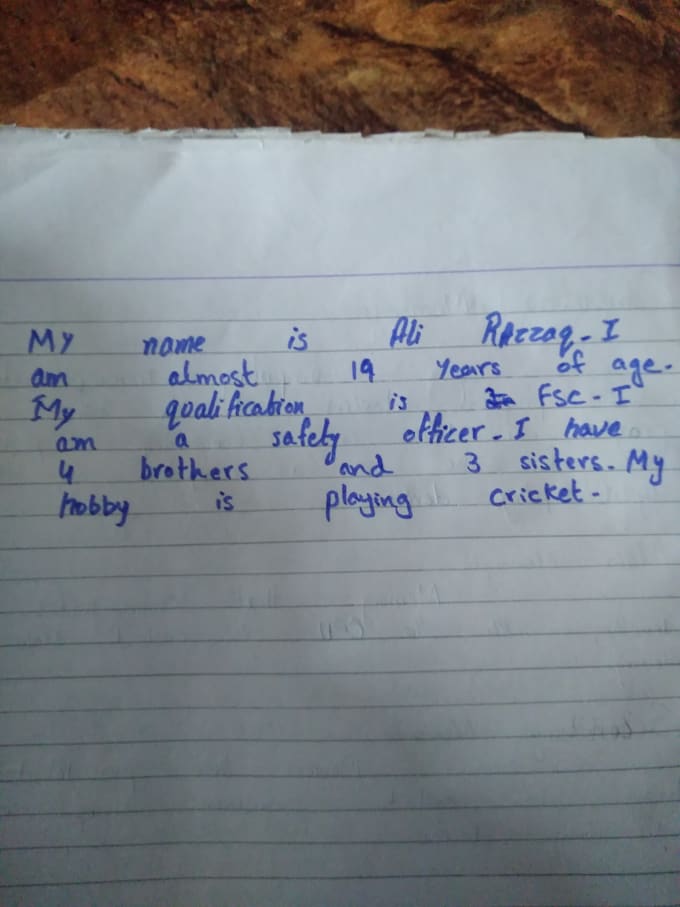 My name is Ali Razzaq. I
am almost 19 years of age.
My qoalification is FSC. I
am a safety officer. I have
4 brothers and 3 sisters. My
hobby is playing cricket.